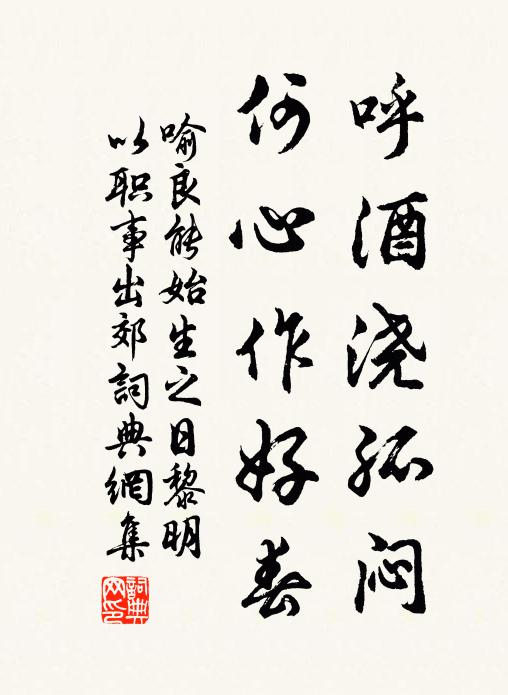 呼酒浇孤闷
何心作好春
喻良能始生之日黎明
以职事出郊詞典網集
詞典
网印